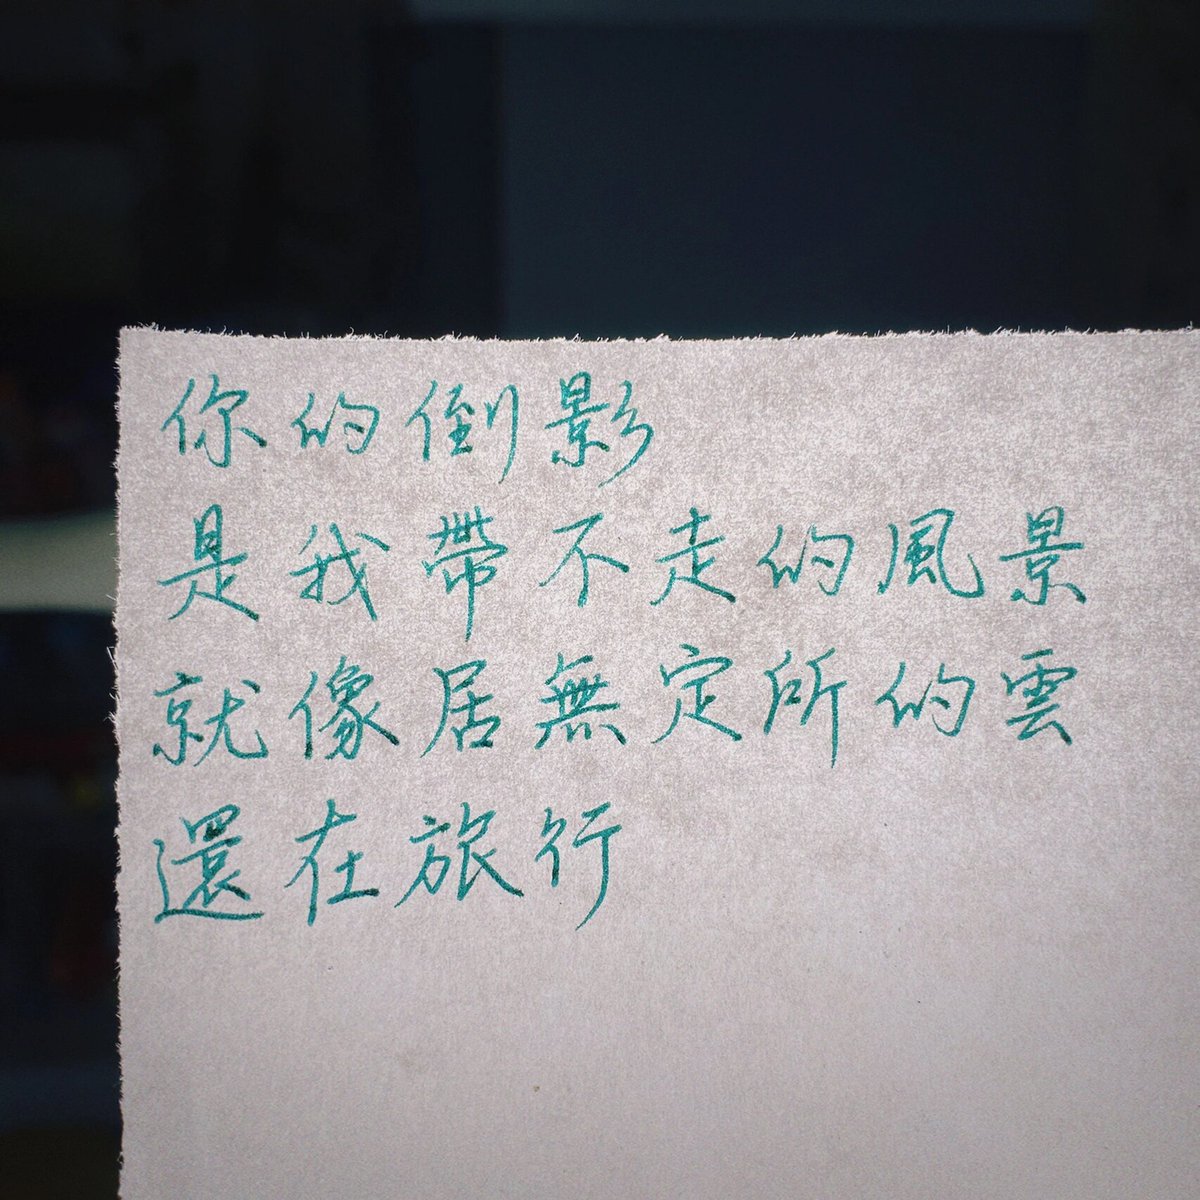 你的倒影
是我帶不走的風景
就像居無定所的雲
還在旅行